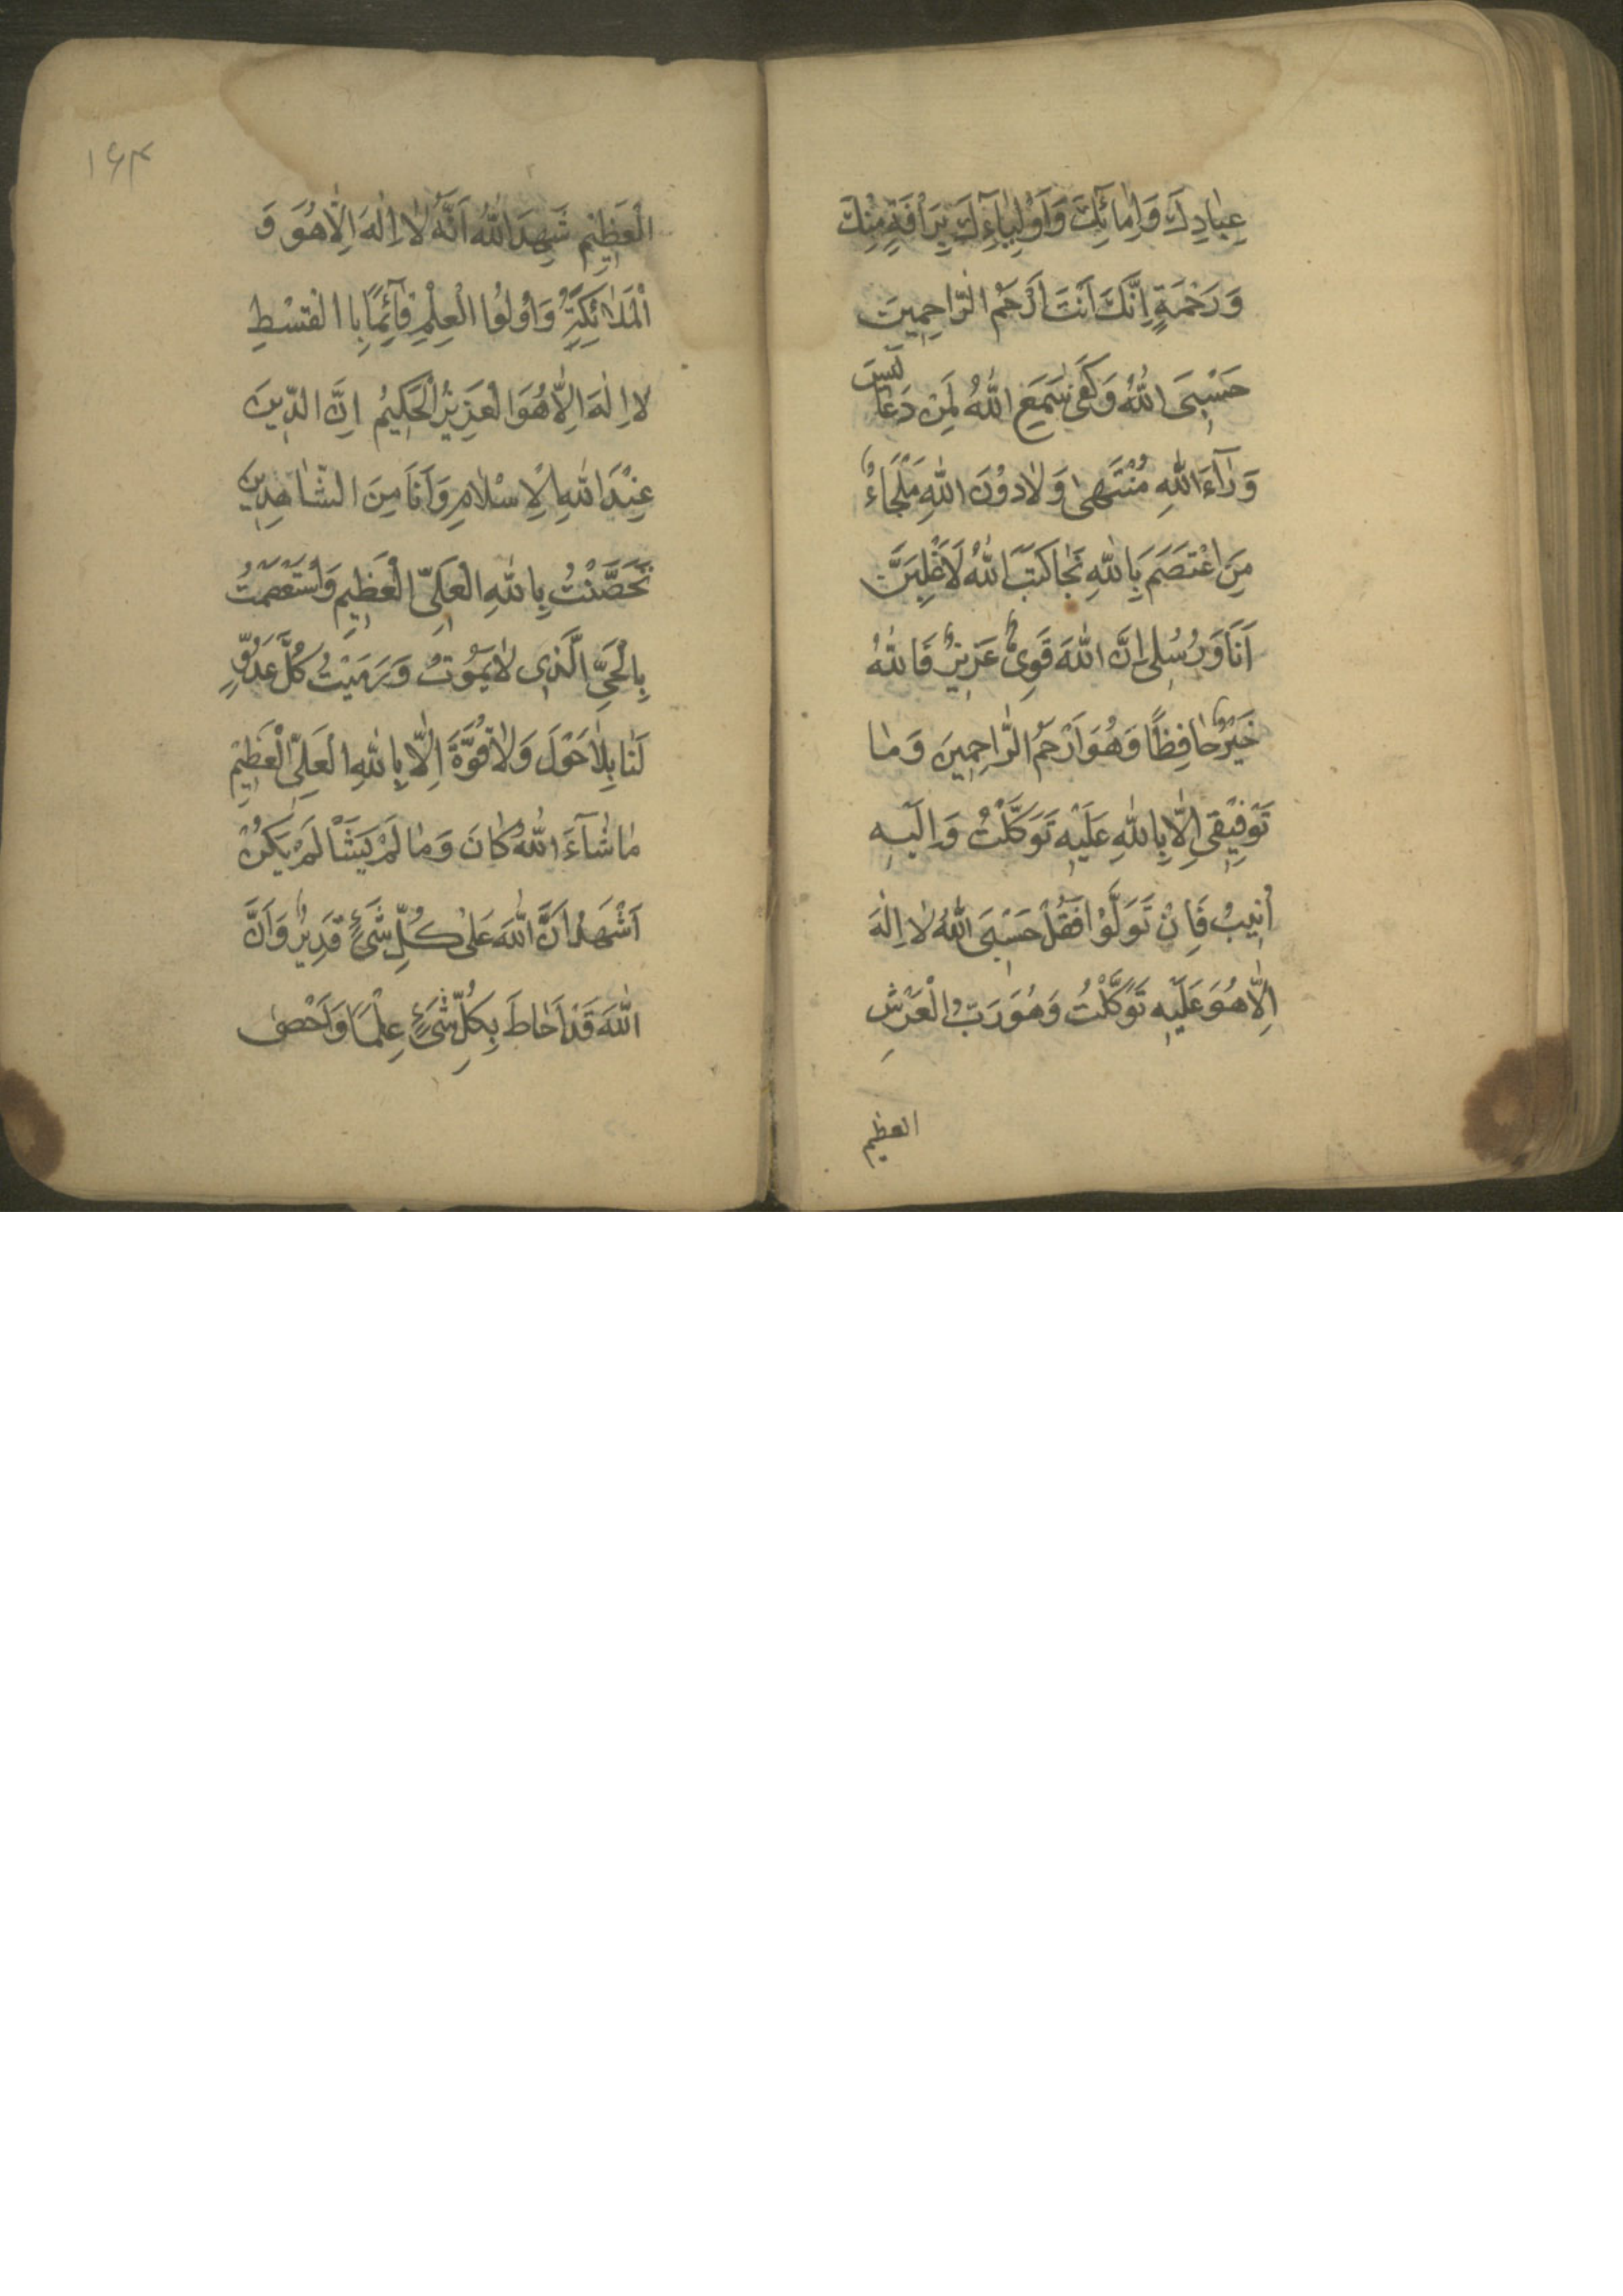 عِبٰادِكَ وَاِمٰائِكَ وَاَوْلِيٰآءِكَ بِرَأفَةٍ مِنْكَ
وَرَحْمَةٍ اِنَّكَ اَنْتَ اَرْحَمُ الرّٰاحِمِينَ
حَسْبِىَ اللّٰهُ وَكَفىٰ سَمِعَ اللّٰهُ لِمَنْ دَعٰا لَيْسَ
وَرٰآءَ اللّٰهِ مُنْتَهىٰ وَلٰا دُوْنَ اللّٰهِ مَلْجَاءٌ
مَنِ اعْتَصَمَ بِاللّٰهِ نَجٰا كَتَبَ اللّٰهُ لَاَغْلِبَنَّ
اَنَا وَرُسُلِى اِنَّ اللّٰهَ قَوِىٌّ عَزِيزٌ فَاللّٰهُ
خَيْرٌ حٰافِظًا وَهُوَ اَرْحَمُ الرّٰاحِمِينَ وَمٰا
تَوْفِيْقِى اِلّٰا بِاللّٰهِ عَلَيْهِ تَوَكَّلْتُ وَاِلَيْهِ
اُنِيبُ فَاِنْ تَوَلَّوْا فَقُلْ حَسْبِىَ اللّٰهُ لٰا اِلٰهَ
اِلّٰا هُوَ عَلَيْهِ تَوَكَّلْتُ وَهُوَ رَبُّ الْعَرْشِ
العظيم
۱۶۴
الْعَظِيْمِ شَهِدَ اللّٰهُ اَنَّهُ لٰا اِلٰهَ اِلّٰا هُوَ وَ
الْمَلٰائِكَةُ وَاُوْلُوا الْعِلْمِ قٰآئِمًا بِاالْقِسْطِ
لا اِلٰهَ اِلّٰا هُوَ الْعَزِيزُ الْحَكِيمُ اِنَّ الدِّينَ
عِنْدَ اللّٰهِ الْاِسْلٰامِ وَاَنَا مِنَ الشّٰاهِدِينَ
تَحَصَّنْتُ بِاللّٰهِ الْعَلِىِّ الْعَظِيمِ وَاسْتَعْصَمْتُ
بِالْحَىِّ الَّذِى لٰا يَمُوْتُ وَرَمَيْتُ كُلَّ عَدُوٍّ
لَنٰا بِلٰا حَوْلَ وَلٰا قُوَّةَ اِلّٰا بِاللّٰهِ الْعَلِىِّ الْعَظِيْمِ
مٰا شٰآءَ اللّٰهُ كٰانَ وَمٰا لَمْ يَشَأْ لَمْ يَكُنْ
اَشْهَدُ اَنَّ اللّٰهَ عَلىٰ كُلِّ شَىْءٍ قَدِيرٌ وَاَنَّ
اللّٰهَ قَدْ اَحٰاطَ بِكُلِّ شَىْءٍ عِلْمًا وَاَحْصىٰ